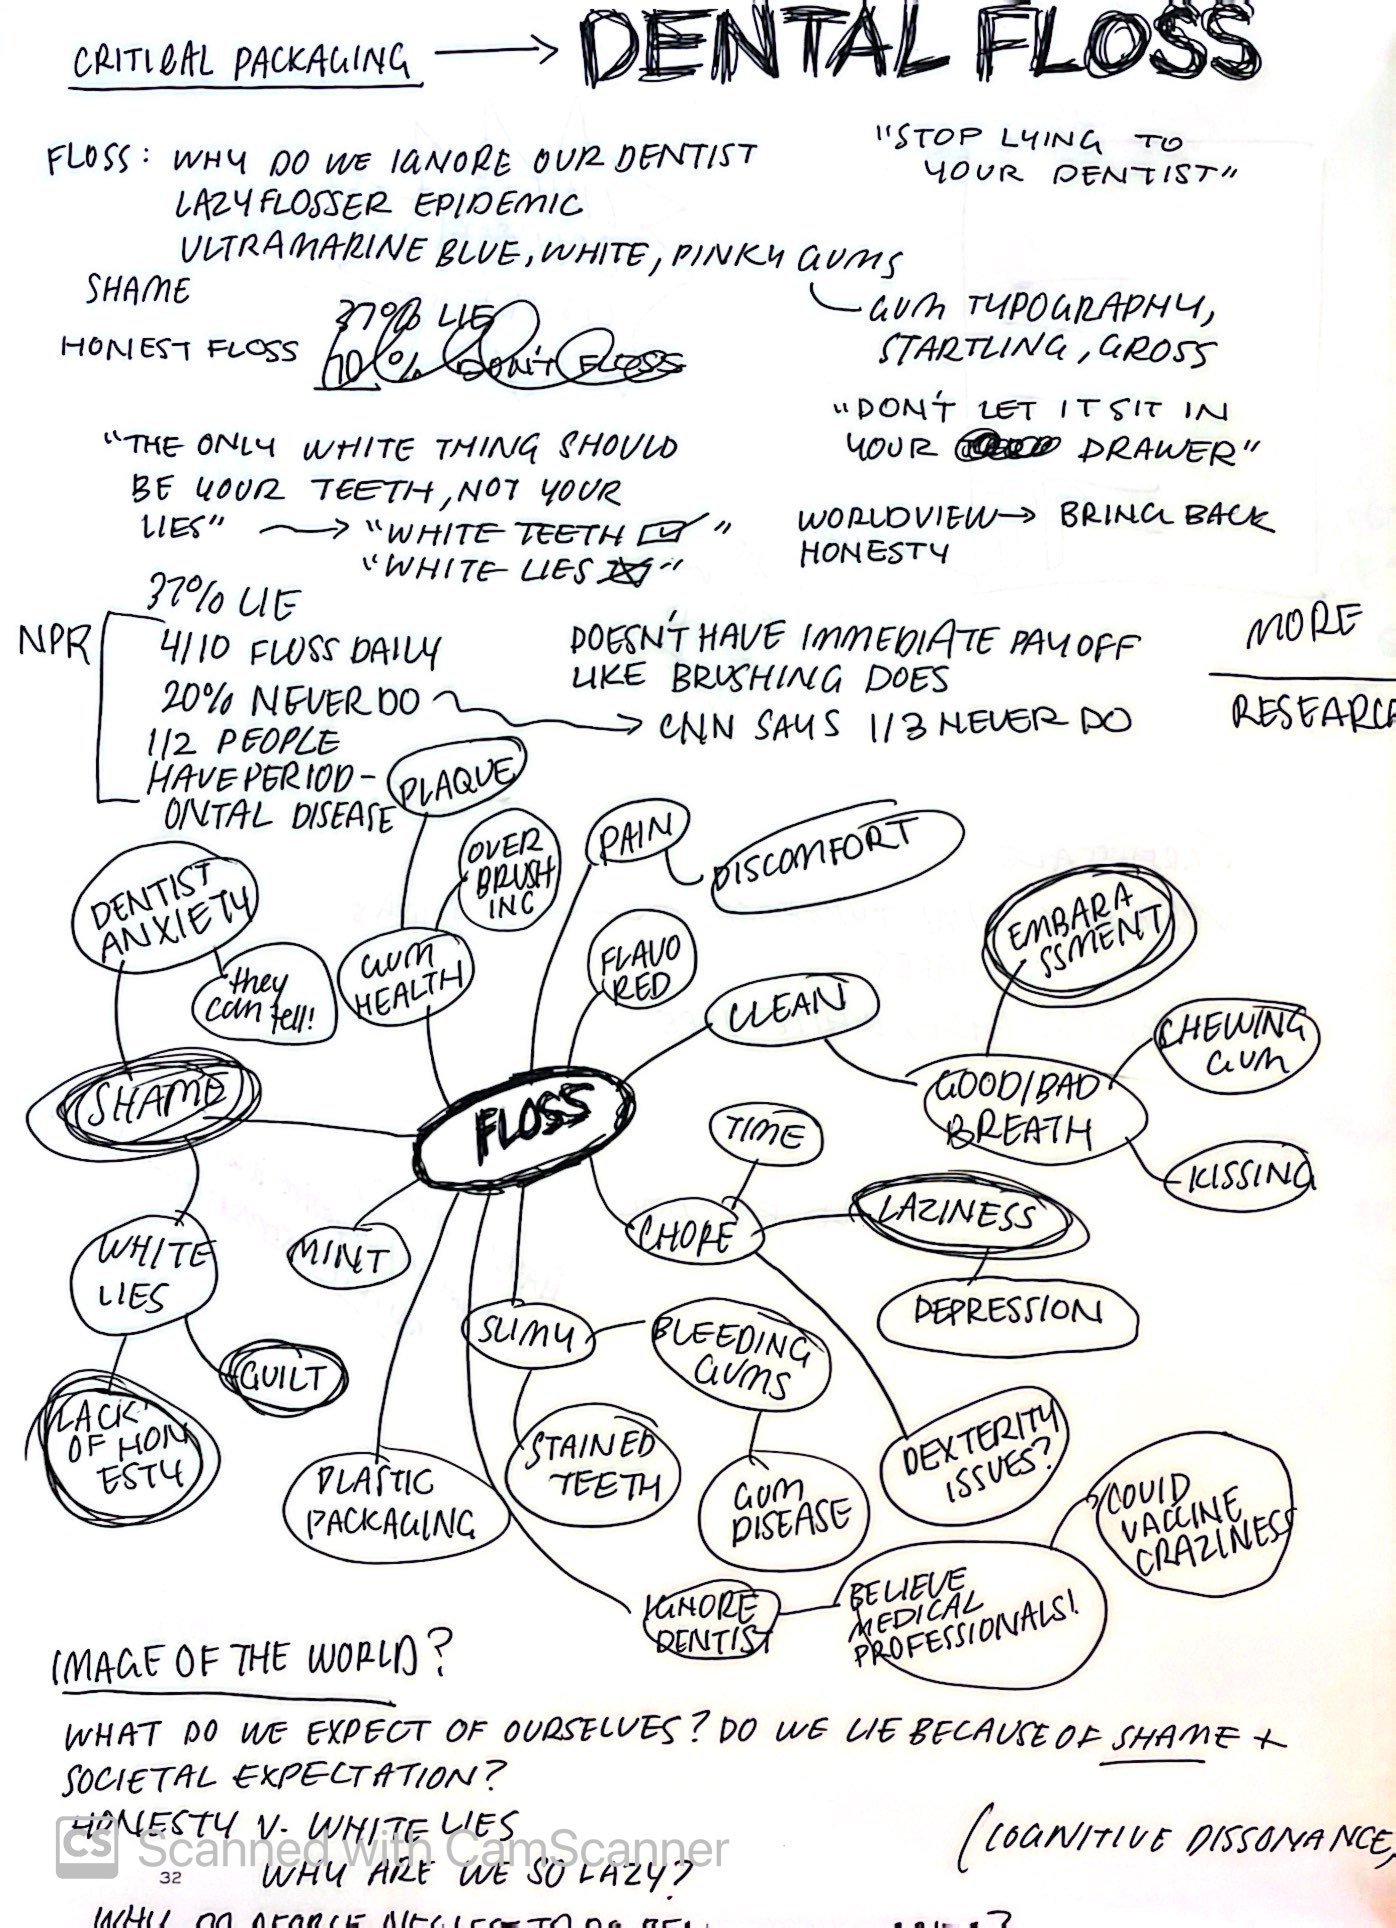 CRITICAL PACKAGING → DENTAL FLOSS
"STOP LYING TO
YOUR DENTIST"
FLOSS: WHY DO WE IGNORE OUR DENTIST
LAZY FLOSSER EPIDEMIC
ULTRAMARINE BLUE, WHITE, PINKY GUMS
GUM TYPOGRAPHY,
STARTLING, GROSS
SHAME
HONEST FLOSS
37% LIE
DON'T FLOSS
"DON'T LET IT SIT IN
YOUR DRAWER"
"THE ONLY WHITE THING SHOULD
BE YOUR TEETH, NOT YOUR
LIES" → "WHITE TEETH ☑"
"WHITE LIES ☒"
WORLDVIEW → BRING BACK
HONESTY
NPR
37% LIE
4/10 FLOSS DAILY
20% NEVER DO
1/2 PEOPLE
HAVE PERIOD-
ONTAL DISEASE
DOESN'T HAVE IMMEDIATE PAYOFF
LIKE BRUSHING DOES
→ CNN SAYS 1/3 NEVER DO
MORE
RESEARC
PLAQUE
OVER
BRUSH
ING
PAIN
DISCOMFORT
DENTIST
ANXIETY
they
can tell!
GUM
HEALTH
FLAVO
RED
CLEAN
EMBARA
SSMENT
CHEWING
GUM
GOOD/BAD
BREATH
KISSING
SHAME
FLOSS
TIME
CHORE
LAZINESS
DEPRESSION
WHITE
LIES
MINT
GUILT
LACK
OF HON
ESTY
SLIMY
BLEEDING
GUMS
STAINED
TEETH
GUM
DISEASE
DEXTERITY
ISSUES?
PLASTIC
PACKAGING
COVID
VACCINE
CRAZINESS
IGNORE
DENTIST
BELIEVE
MEDICAL
PROFESSIONALS!
IMAGE OF THE WORLD?
WHAT DO WE EXPECT OF OURSELVES? DO WE LIE BECAUSE OF SHAME +
SOCIETAL EXPECTATION?
HONESTY V. WHITE LIES
(COGNITIVE DISSONANCE,
CS Scanned with CamScanner
32
WHY ARE WE SO LAZY?
WHY DO PEOPLE NEGLECT TO DO